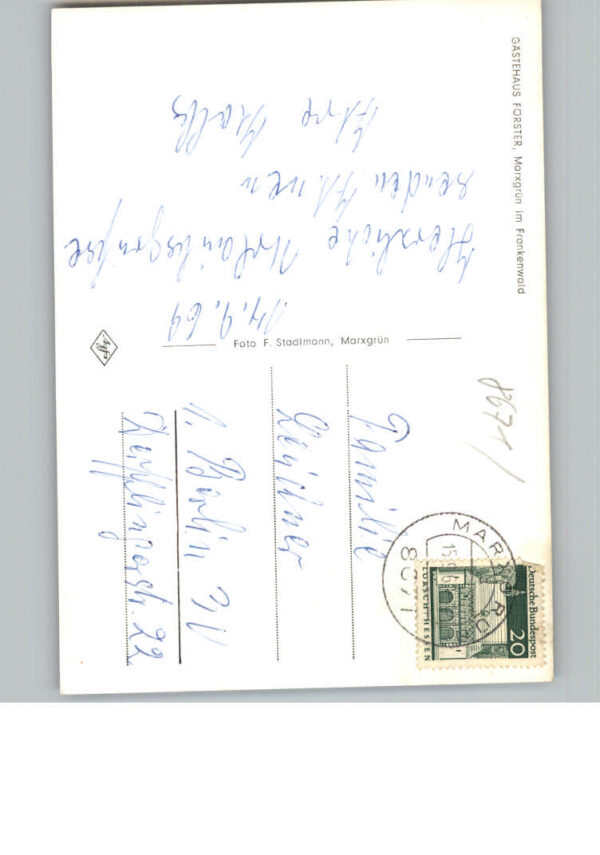 GÄSTEHAUS FÖRSTER, Marxgrün im Frankenwald
14.9.69
Herzliche Urlaubsgrüße
senden Ihnen
Ihre
Foto F. Stadlmann, Marxgrün
Agfa
Familie
1. Berlin
22
8671
MARXGRÜN
8671
Deutsche Bundespost
20
LORSCH·HESSEN